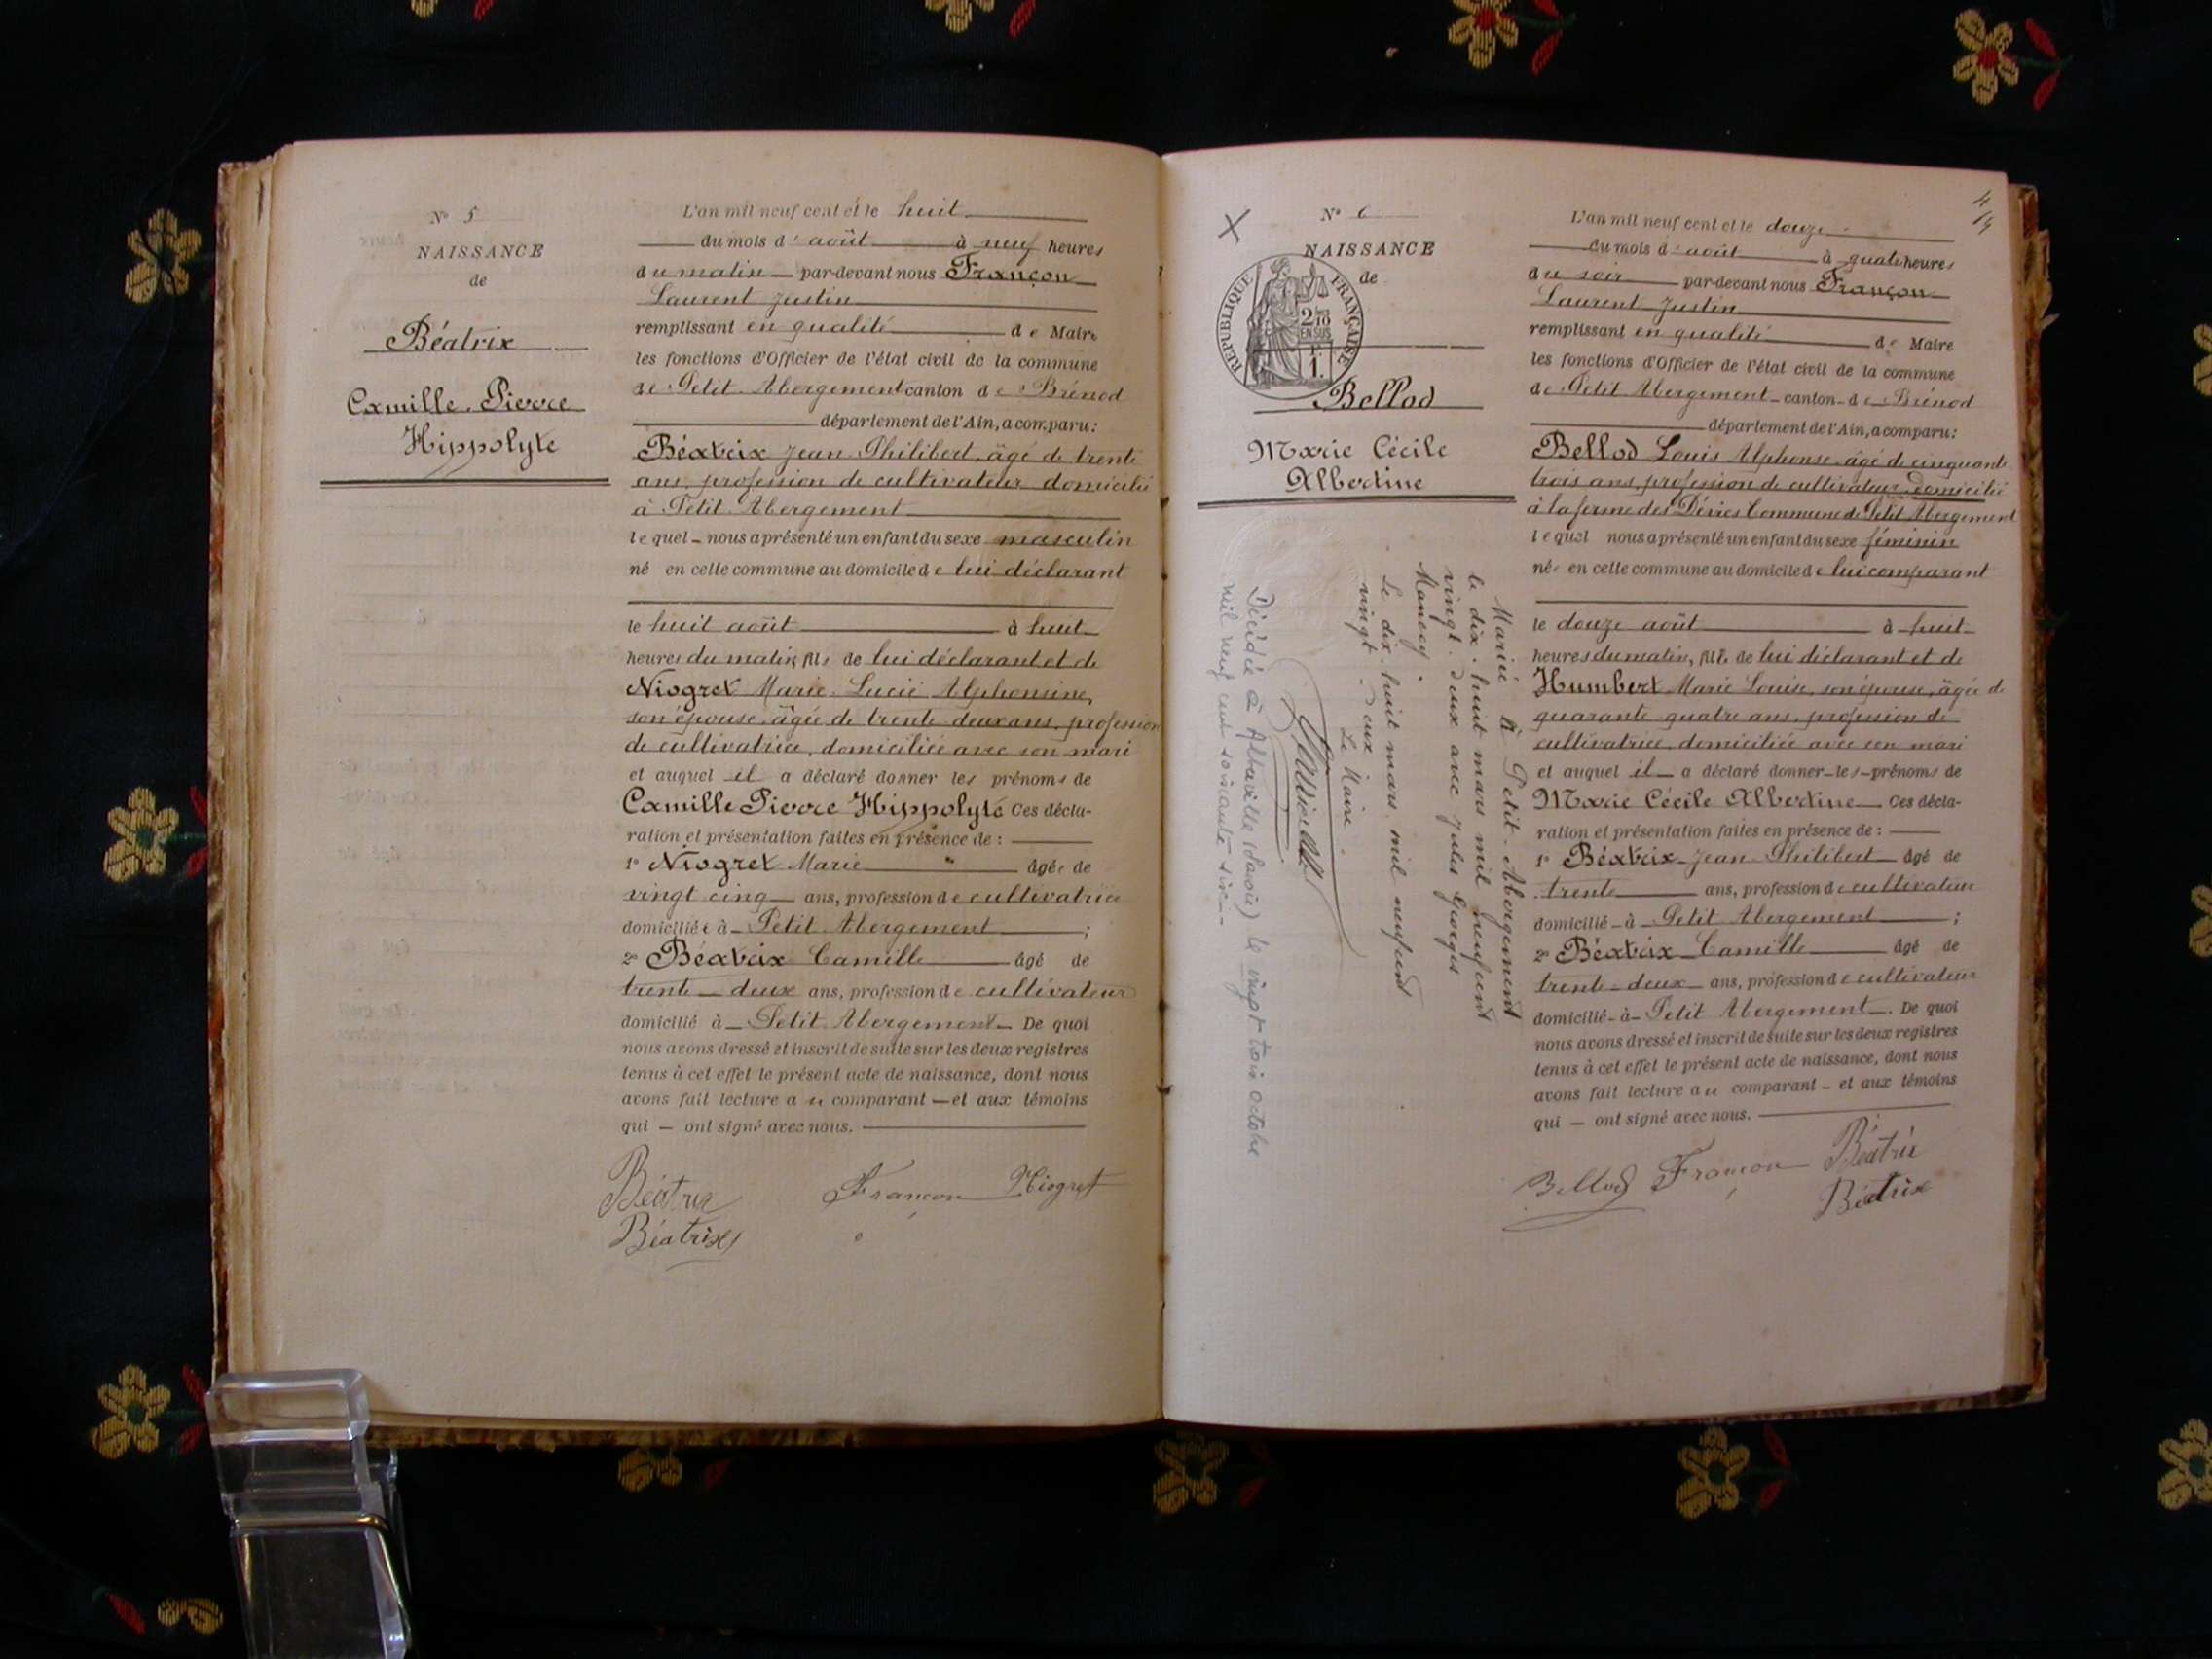 N° 5
NAISSANCE
de
Béatrix
Camille Pierre
Hippolyte
L'an mil neuf cent et le huit
du mois d'août à neuf heures
du matin par-devant nous Françon
Laurent Justin
remplissant en qualité de Maire
les fonctions d'Officier de l'état civil de la commune
de Petit Abergement canton de Brénod
département de l'Ain, a comparu:
Béatrix Jean Philibert, âgé de trente
ans, profession de cultivateur domicilié
à Petit Abergement
lequel nous a présenté un enfant du sexe masculin
né en cette commune au domicile de lui déclarant
le huit août à huit
heures du matin, fils de lui déclarant et de
Niogret Marie Lucie Alphonsine,
son épouse, âgée de trente deux ans, profession
de cultivatrice, domiciliée avec son mari
et auquel il a déclaré donner les prénoms de
Camille Pierre Hippolyte Ces décla-
ration et présentation faites en présence de:
1° Niogret Marie âgée de
vingt cinq ans, profession de cultivatrice
domiciliée à Petit Abergement ;
2° Béatrix Camille âgé de
trente-deux ans, profession de cultivateur
domicilié à Petit Abergement De quoi
nous avons dressé et inscrit de suite sur les deux registres
tenus à cet effet le présent acte de naissance, dont nous
avons fait lecture au comparant et aux témoins
qui ont signé avec nous.
Béatrix Françon Niogret
Béatrix
4/4
N° 6
NAISSANCE
de
REPUBLIQUE FRANÇAISE
2/10 EN SUS
1.
Bellod
Marie Cécile
Albertine
Mariée à Petit-Abergement
le dix-huit mars mil neuf cent
vingt-deux avec Jules Georges
Le dix-huit mars mil neuf cent
vingt-deux
Le Maire.
Décédée à Albertville (Savoie) le vingt trois octobre
mil neuf cent soixante six
L'an mil neuf cent et le douze
du mois d'août à quatre heures
du soir par-devant nous Françon
Laurent Justin
remplissant en qualité de Maire
les fonctions d'Officier de l'état civil de la commune
de Petit Abergement canton de Brénod
département de l'Ain, a comparu:
Bellod Louis Alphonse, âgé de cinquante
trois ans, profession de cultivateur domicilié
à la ferme des Commune de Petit Abergement
lequel nous a présenté un enfant du sexe féminin
née en cette commune au domicile de lui comparant
le douze août à huit
heures du matin, fille de lui déclarant et de
Humbert Marie Louise, son épouse, âgée de
quarante quatre ans, profession de
cultivatrice, domiciliée avec son mari
et auquel il a déclaré donner les prénoms de
Marie Cécile Albertine Ces décla-
ration et présentation faites en présence de:
1° Béatrix Jean Philibert âgé de
trente ans, profession de cultivateur
domicilié à Petit Abergement ;
2° Béatrix Camille âgé de
trente-deux ans, profession de cultivateur
domicilié à Petit Abergement. De quoi
nous avons dressé et inscrit de suite sur les deux registres
tenus à cet effet le présent acte de naissance, dont nous
avons fait lecture au comparant et aux témoins
qui ont signé avec nous.
Bellod Françon Béatrix
Béatrix